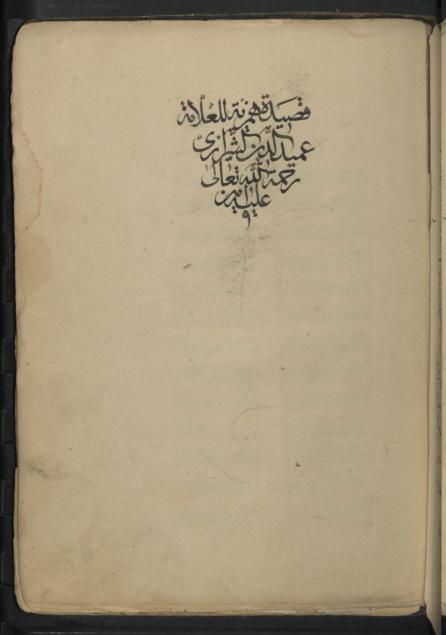 قصيدة همزية للعلامة
عميد الدين الشيرازى
رحمة الله تعالى
عليه امين